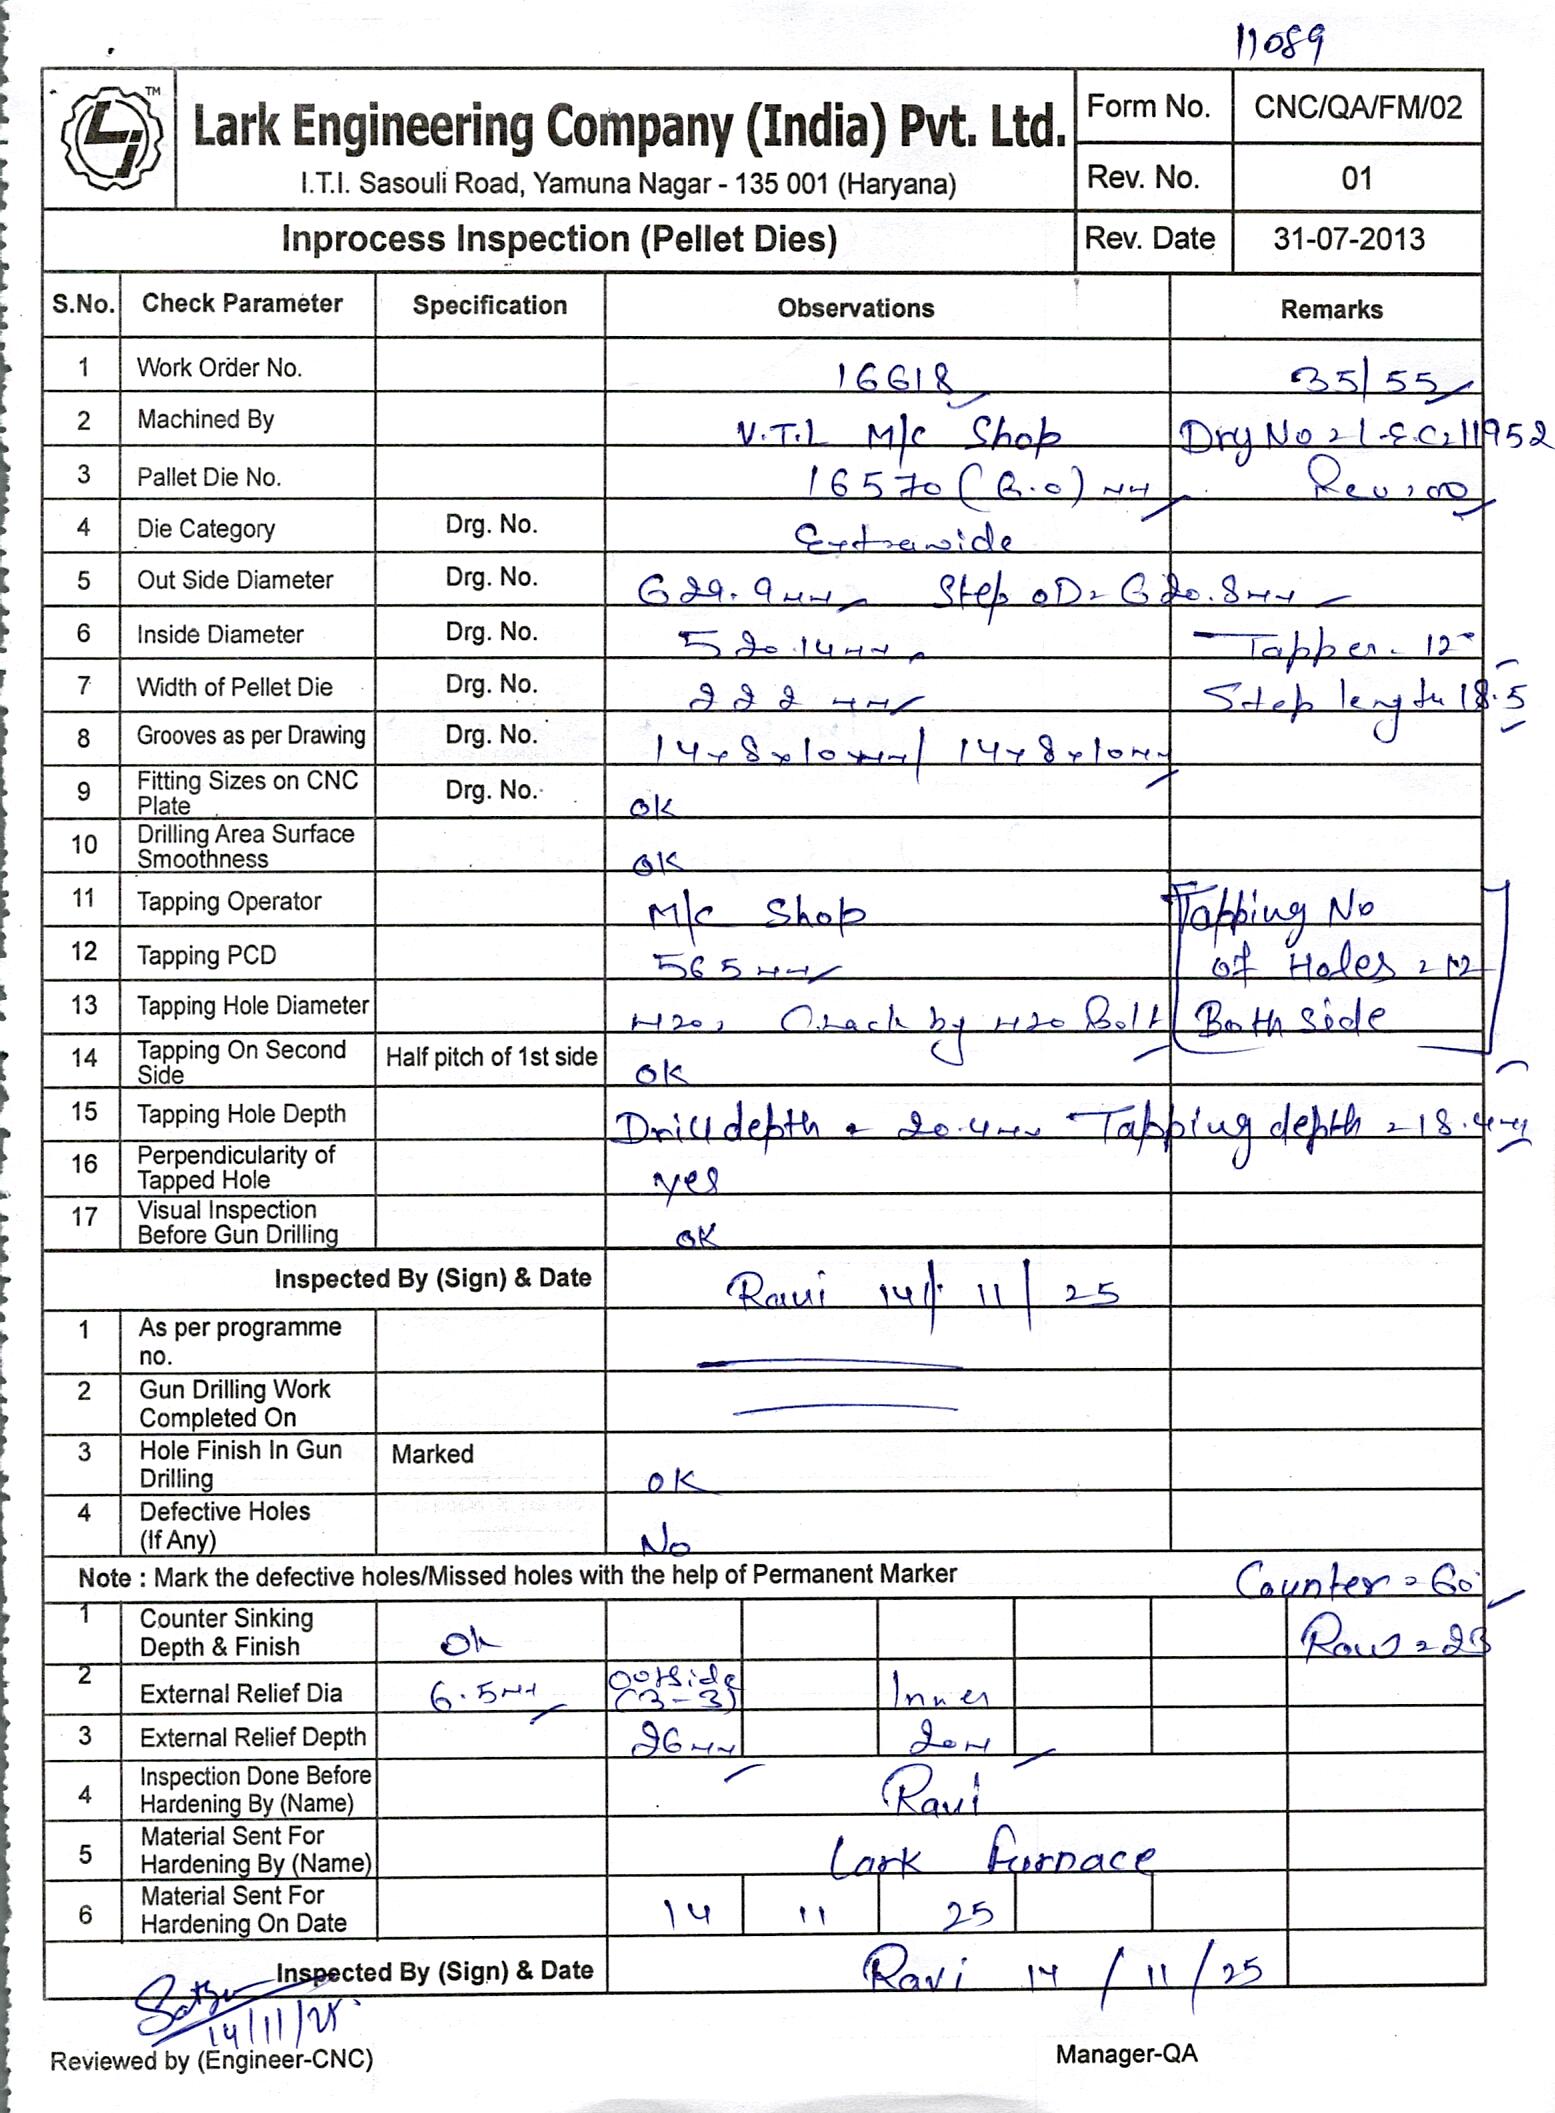 11089
TM
Lark Engineering Company (India) Pvt. Ltd.
I.T.I. Sasouli Road, Yamuna Nagar - 135 001 (Haryana)
Form No. CNC/QA/FM/02
Rev. No. 01
Inprocess Inspection (Pellet Dies)
Rev. Date 31-07-2013
S.No. Check Parameter Specification Observations Remarks
1 Work Order No. 16618 35/55
2 Machined By V.T.L M/c Shop Drg No = L.E.C=11952
3 Pallet Die No. 16570 (B.O) MM Rev=00
4 Die Category Drg. No. Extrawide
5 Out Side Diameter Drg. No. 629.9mm Step OD=620.8mm
6 Inside Diameter Drg. No. 520.14mm Tapper = 12°
7 Width of Pellet Die Drg. No. 222 mm Step length 18.5
8 Grooves as per Drawing Drg. No. 14x8x10mm/ 14x8x10mm
9 Fitting Sizes on CNC Plate Drg. No. OK
10 Drilling Area Surface Smoothness OK
11 Tapping Operator M/c Shop Tapping No
12 Tapping PCD 565mm of Holes = 12
13 Tapping Hole Diameter M20, Check by M20 Bolt Both side
14 Tapping On Second Side Half pitch of 1st side OK
15 Tapping Hole Depth Drill depth = 20.4mm Tapping depth = 18.4mm
16 Perpendicularity of Tapped Hole yes
17 Visual Inspection Before Gun Drilling OK
Inspected By (Sign) & Date Ravi 14/11/25
1 As per programme no.
2 Gun Drilling Work Completed On
3 Hole Finish In Gun Drilling Marked OK
4 Defective Holes (If Any) No
Note : Mark the defective holes/Missed holes with the help of Permanent Marker Counter = 60°
1 Counter Sinking Depth & Finish Ok Row = 23
2 External Relief Dia 6.5mm Outside (3-3) Inner
3 External Relief Depth 26mm 20m
4 Inspection Done Before Hardening By (Name) Ravi
5 Material Sent For Hardening By (Name) Lark Furnace
6 Material Sent For Hardening On Date 14 11 25
Inspected By (Sign) & Date Ravi 14/11/25
14/11/25
Reviewed by (Engineer-CNC) Manager-QA